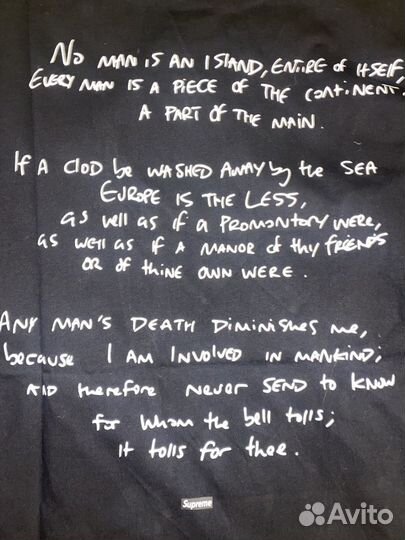 No MAN IS AN ISLAND, ENTIRE OF ITSELF,
EVERY MAN IS A PIECE OF THE CONTINENT.
A PART OF THE MAIN.
If A Clod be WASHED AWAY by the SEA
EUROPE IS THE LESS,
as well as if a PROMONTORY WERE,
as well as if A MANOR of thy FRIENDS
OR of thine OWN WERE.
ANY MAN'S DEATH Diminishes me,
because I AM INVOLVED IN MANKIND;
AND therefore never SEND to know
for whom the bell tolls;
it tolls for thee.
Supreme
Avito